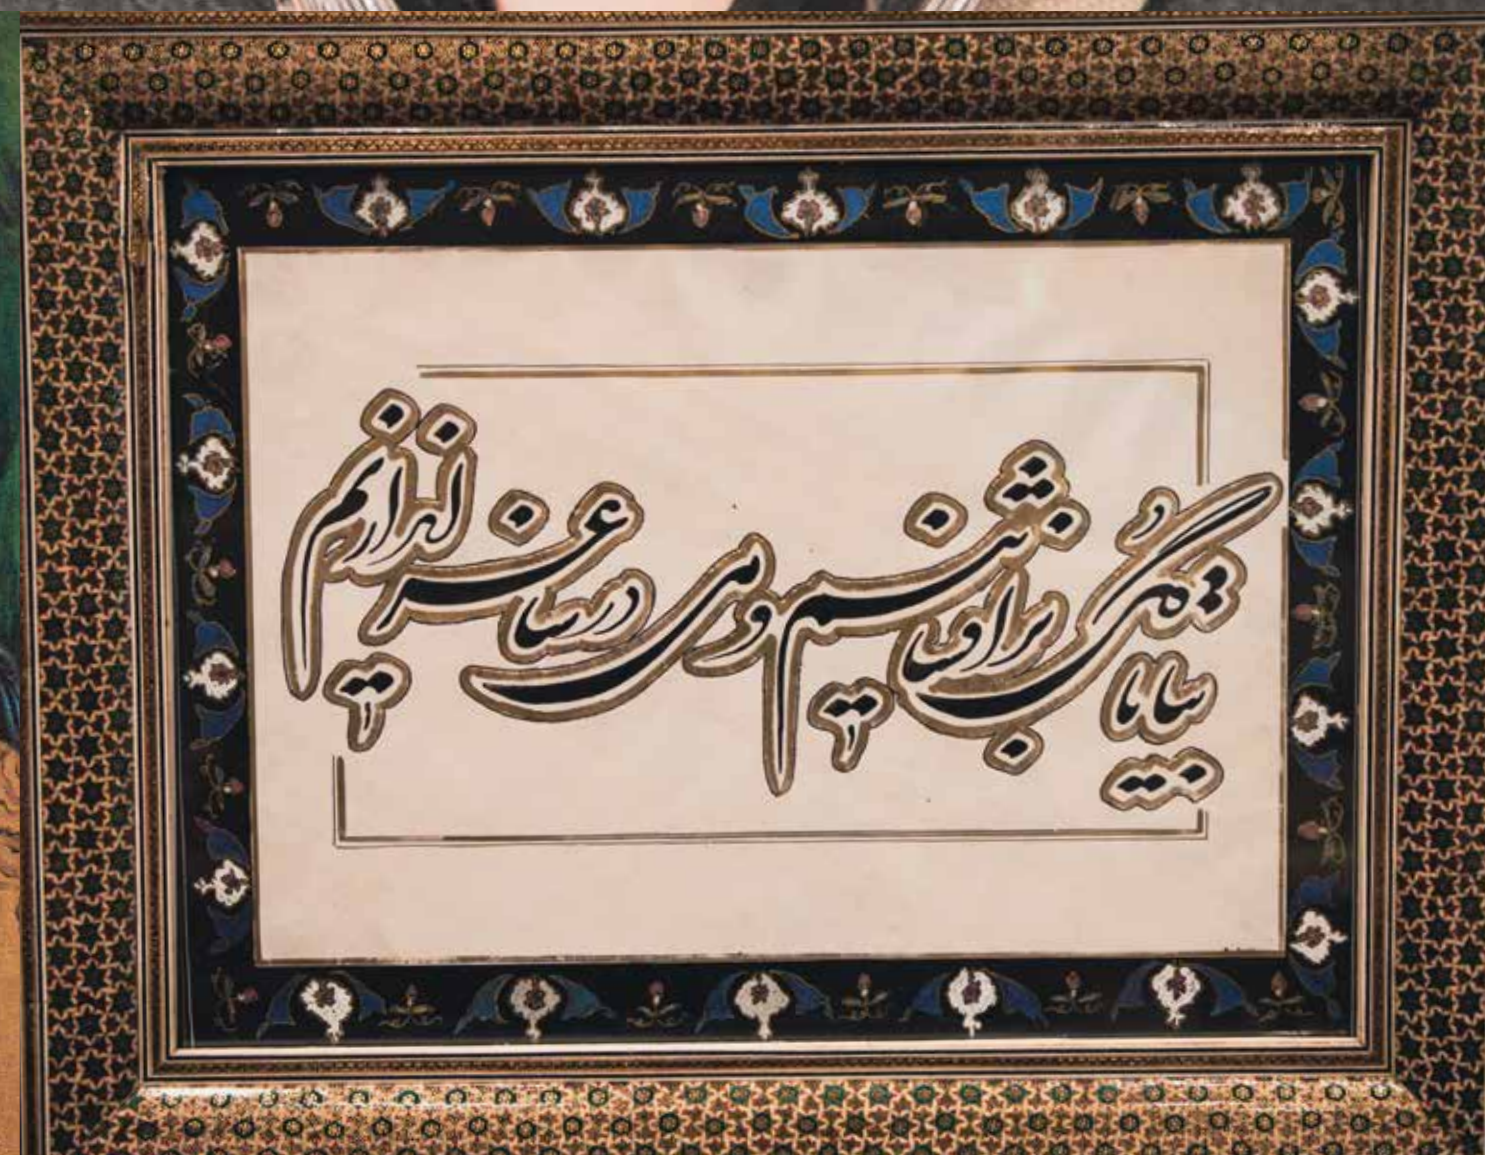 بیا تا گل برافشانیم و می در ساغر اندازیم